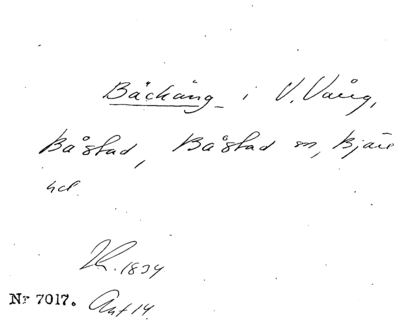 Bäckäng i V. Väng,
Båstad, Båstad sn, Bjäre
hd.
Sk. 1834
Nr 7017. Akt 14